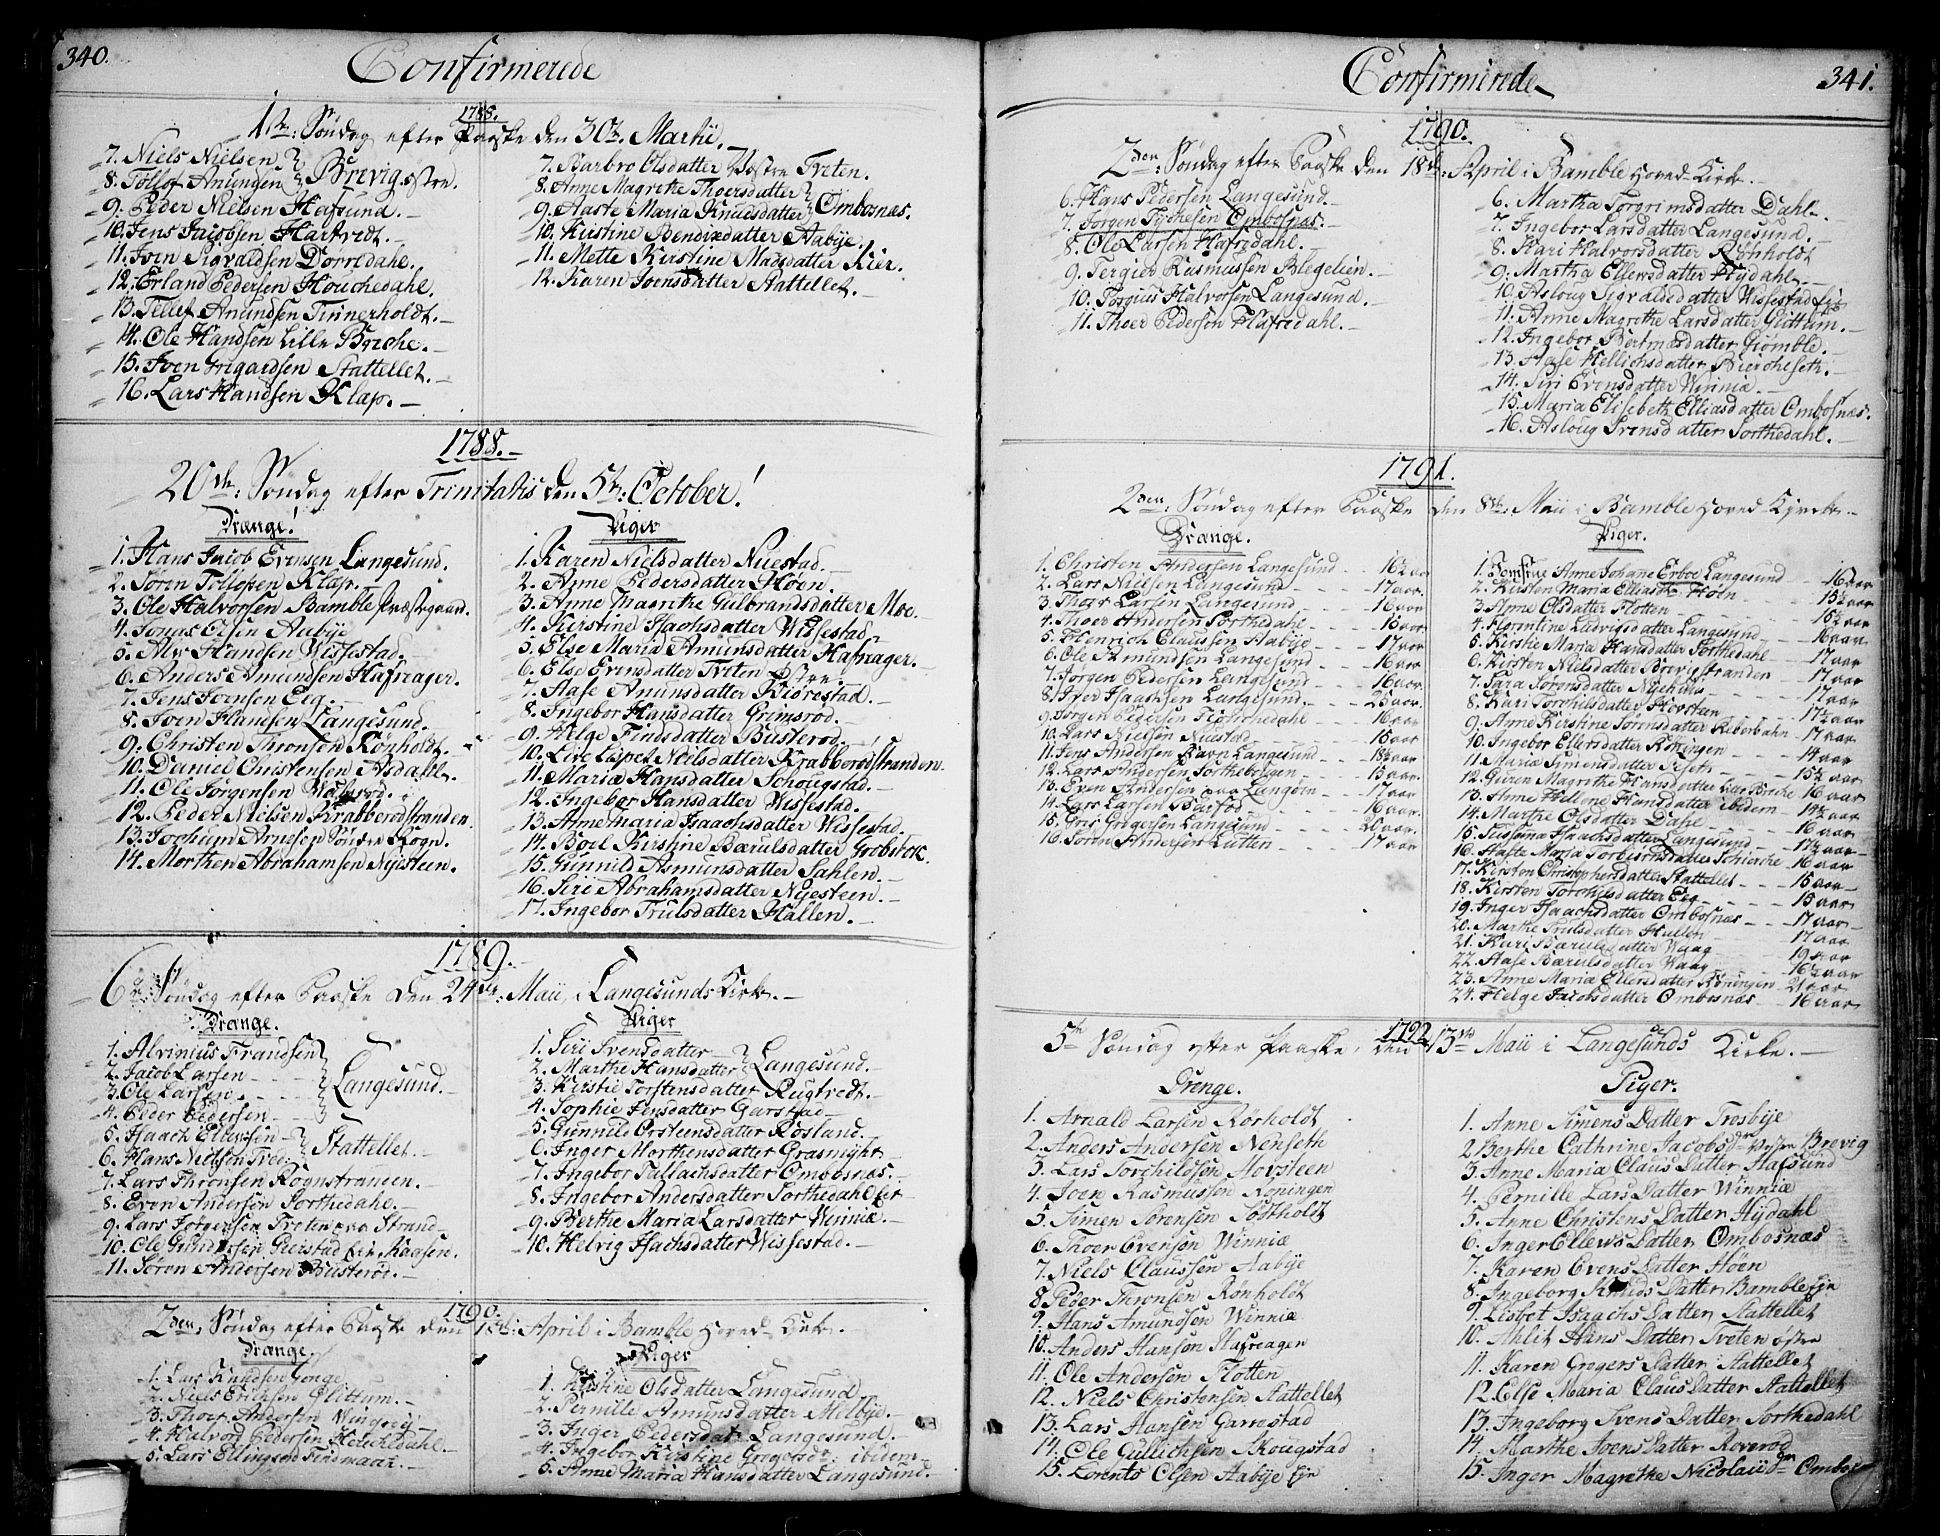 340.
Confirmerede
1788.
1ste Søndag efter Paaske den 30te Martii.
7. Niels Nielsen
8. Tollof Anunsen
Brevig østre.
9. Peder Nielsen Hafsund.
10. Jens Jacobsen Hartvedt.
11. Joen Sigvaldsen Dørredahl.
12. Erland Pedersen Houchedahl.
13. Tellef Anundsen Tinnerholdt.
14. Ole Handsen Lille Bgrche.
15. Joen Frigardsen Stattellet.
16. Lars Handsen Klap.
7. Barbro Olsdatter Vestre Tveten.
8. Anne Magrethe Thoersdatter
9. Aaste Maria Knudsdatter
Ombosnæs.
10. Kirstine Bendixdatter Aabÿe.
11. Mette Kirstine Madsdatter Kier.
12. Karen Joensdatter Stattellet.
1788.
20de Søndag efter Trinitatis den 5te October!
Drænge!
1. Hans Jacob Evensen Langesund.
2. Søren Tollofsen Klap.
3. Ole Halvorsen Bamble Præstegaard.
4. Jonas Olsen Aabÿe
5. Alv Handsen Wissestad.
6. Anders Amundsen Hafreager.
7. Jens Joensen Eeg.
8. Joen Hansen Langesund.
9. Christen Thronsen Rønholdt.
10. Daniel Christensen Asdahl.
11. Ole Jørgensen
12. Peder Nielsen Krabberødstranden.
13. Jochum Arnesen Søndre Rogn.
14. Morthen Abrahamsen Nÿesteen.
Piger
1. Karen Nielsdatter Nuestad.
2. Anne Pedersdatter Høen.
3. Anne Magrethe Gulbrandsdatter Moe.
4. Kirstine Isachsdatter Wissestad.
5. Else Maria Amunsdatter Hafreager.
6. Else Evensdatter Tveten Østre
7. Aase Amunsdatter Kiørestad.
8. Ingebor Hansdatter Grimsrød.
9. Helge Findsdatter Busterød.
10. Live Lispet Nielsdatter Krabberødstranden.
11. Maria Hansdatter Schougstad.
12. Ingebor Hansdatter Wissestad.
13. Anne Maria Isaachsdatter Wissestad.
14. Boel Kirstine Bærulsdatter Grobstok.
15. Gunnild Asmunsdatter Sahlen.
16. Siri Abrahamsdatter Nÿesteen.
17. Ingebor Trulsdatter Hallen.
1789.
6te Søndag efter Paaske den 24de Maii, i Langesunds Kirke.
Drænge.
1. Alvinius Frandsen
2. Jacob Larsen
3. Ole Larsen
4. Peder Pedersen
Langesund.
5. Isaach Ellefsen
6. Hans Nielsen Tved.
Stattellet.
7. Lars Thronsen Rognstranden.
8. Even Andersen Torthedahl.
9. Lars Jørgensen Tveten Strand
10. Ole Gundersen Gierstad
11. Søren Andersen Busterød.
Piger
1. Siri Svensdatter
2. Marthe Hansdatter
Langesund.
3. Kirstie Torstensdatter Rugtvedt.
4. Sophie Jensdatter Garstad
5. Gunnild Orsteensdatter Rosland.
6. Inger Morthensdatter Grasmÿhr
7. Ingebor Tallachsdatter Ombosnæs.
8. Ingebor Andersdatter Torthedahl
9. Berthe Maria Larsdatter Winniæ.
10. Helvig Isachsdatter Wissestad.
1790.
2den Søndag efter Paaske den 18de April i Bamble Hoved Kirke.
Drænge.
1. Lars Knudsen Gonge
2. Niels Ericksen Glittum.
3. Thoer Andersen
4. Halvord Pedersen Houchedahl.
5. Lars Ellingsen Findmarck.
Piger
1. Kirstine Olsdatter Langesund
2. Pernille Amunsdatter Melbÿe.
3. Inger Pedersdatter Langesund.
4. Ingebor Kirstine Gregersdr ibidem
5. Anne Maria Hansdatter Langesund.
341.
Confirmerede
1790.
2den Søndag efter Paaske den 18de April i Bamble Hoved Kirke.
6. Hans Pedersen Langesund.
7. Jørgen Tÿchesen Ombosnæs.
8. Ole Larsen Hafredahl.
9. Tergier Rasmussen Blegelien.
10. Torgius Halvorsen Langesund.
11. Thoer Pedersen Hafredahl.
6. Martha Torgrimsdatter Dahl.
7. Ingebor Larsdatter Langesund.
8. Kari Halvorsdatter Rønholdt
9. Martha Ellevsdatter Aÿdahl.
10. Asloug Sigvaldsdatter Wissestad Eje
11. Anne Magrethe Larsdatter Glittum.
12. Ingebor Bertmæsdatter Giømble.
13. Aase Kellichsdatter Bierchesett.
14. Siri Evensdatter Winniæ.
15. Maria Elisebeth Elliasdatter Ombosnæs.
16. Asloug Svensdatter Torthedahl.
1791.
2den Søndag efter Paaske den 8de Maii i Bamble Hoved Kÿrke.
Drænge.
1. Christen Andersen Langesund 16½ aar
2. Lars Nielsen Langesund 17 aar
3. Thoer Larsen Langesund 16 aar
4. Thoer Andersen Torthedahl 16 aar
5. Henrich Claussen Aabÿe 17 aar
6. Ole Amundsen Langesund 16 aar
7. Jørgen Pedersen Langesund 16 aar
8. Iver Isaachsen Langesund 20 aar
9. Jørgen Pedersen 16 aar
10. Lars Nielsen Nuestad 16 aar
11. Jens Andersen Ravn Langesund 18½ aar
12. Lars Andersen Torthebergen 15 aar
13. Even Andersen paa Langøen 17 aar
14. Lars Larsen Bastød 16 aar
15. Gris Gregersen Langesund 20 aar
16. Søren Andersen Lutten 17 aar
Piger.
1. Anne Johane Erboe Langesund 16 aar
2. Kirsten Maria Elliasdtr Høen 15½ aar
3. Anne Olsdatter Flotten 15½ aar
4. Florentine Ludvigsdatter Langesund 16 aar
5. Kirstie Maria Hansdatter Torthedahl 17 aar
6. Kirsten Nielsdatter Brevigstranden 17 aar
7. Sara Sørensdatter Nÿehuus 17 aar
8. Kari Torchilsdatter Hovsteen 17½ aar
9. Anne Kirstine Sørensdatter Reberbahn 17 aar
10. Ingebor Ellevsdatter Rønningen 14 aar
11. Maria Simensdatter Teseth 15½ aar
12. Guren Magrethe Hansdatter Lille Birche 16 aar
13. Anne Hellene Hansdatter ibidem 14½ aar
14. Marthe Olsdatter Dahl 16 aar
15. Sussanna Isaachsdatter Langesund 17½ aar
16. Aaste Maria Torbiørnsdatter 16 aar
17. Kirsten Christophersdatter Stattellet 15 aar
18. Kirsten Torchilsdatter Eeg 15 aar
19. Inger Isaachsdatter Ombosnæs 17 aar
20. Marthe Trulsdatter Hallen 17 aar
21. Kari Bærulsdatter Waag 19 aar
22. Aase Bærulsdatter Waag 16½ aar
23. Anne Maria Ellevsdatter Rønningen 21 aar
24. Helge Isachsdatter Ombosnæs 16 aar
1792
5te Søndag efter Paaske, den 13de Maii i Langesunds Kirke.
Drenge.
1. Arnald Larsen Rørholdt
2. Anders Andersen Nenseth
3. Lars Torchildsen Hovsteen
4. Joen Rasmussen Røningen
5. Simen Sørensen Tostholdt
6. Thoer Evensen Winniæ
7. Niels Claussen Aabÿe
8. Peder Thronsen Rønholdt
9. Hans Amundsen Winniæ
10. Anders Hansen Hafreagen
11. Ole Andersen Flotten
12. Niels Christensen Stattellet
13. Lars Hansen Garrestad
14. Ole Gullichsen Skougstad
15. Lorents Olsen Aabÿe Eje
Piger.
1. Anne Simens Datter Trosbÿe
2. Berthe Cathrine Jacobs Dr Vestre Brevig
3. Anne Maria Claus Datter Hafsund
4. Pernille Lars Datter Winniæ
5. Anne Christens Datter Aÿdahl
6. Inger Ellews Datter Ombosnæs
7. Karen Evens Datter Høen
8. Ingeborg Knuds Datter Bamble Eje
9. Lisbet Isaachs Datter Stattellet
10. Ahlit Hans Datter Tveten østre
11. Karen Gregers Datter Stattellet
12. Else Maria Claus Datter Stattellet
13. Ingeborg Svens Datter Torthedahl
14. Marthe Joens Datter Roverød
15. Inger Magrethe Nicolai Dr